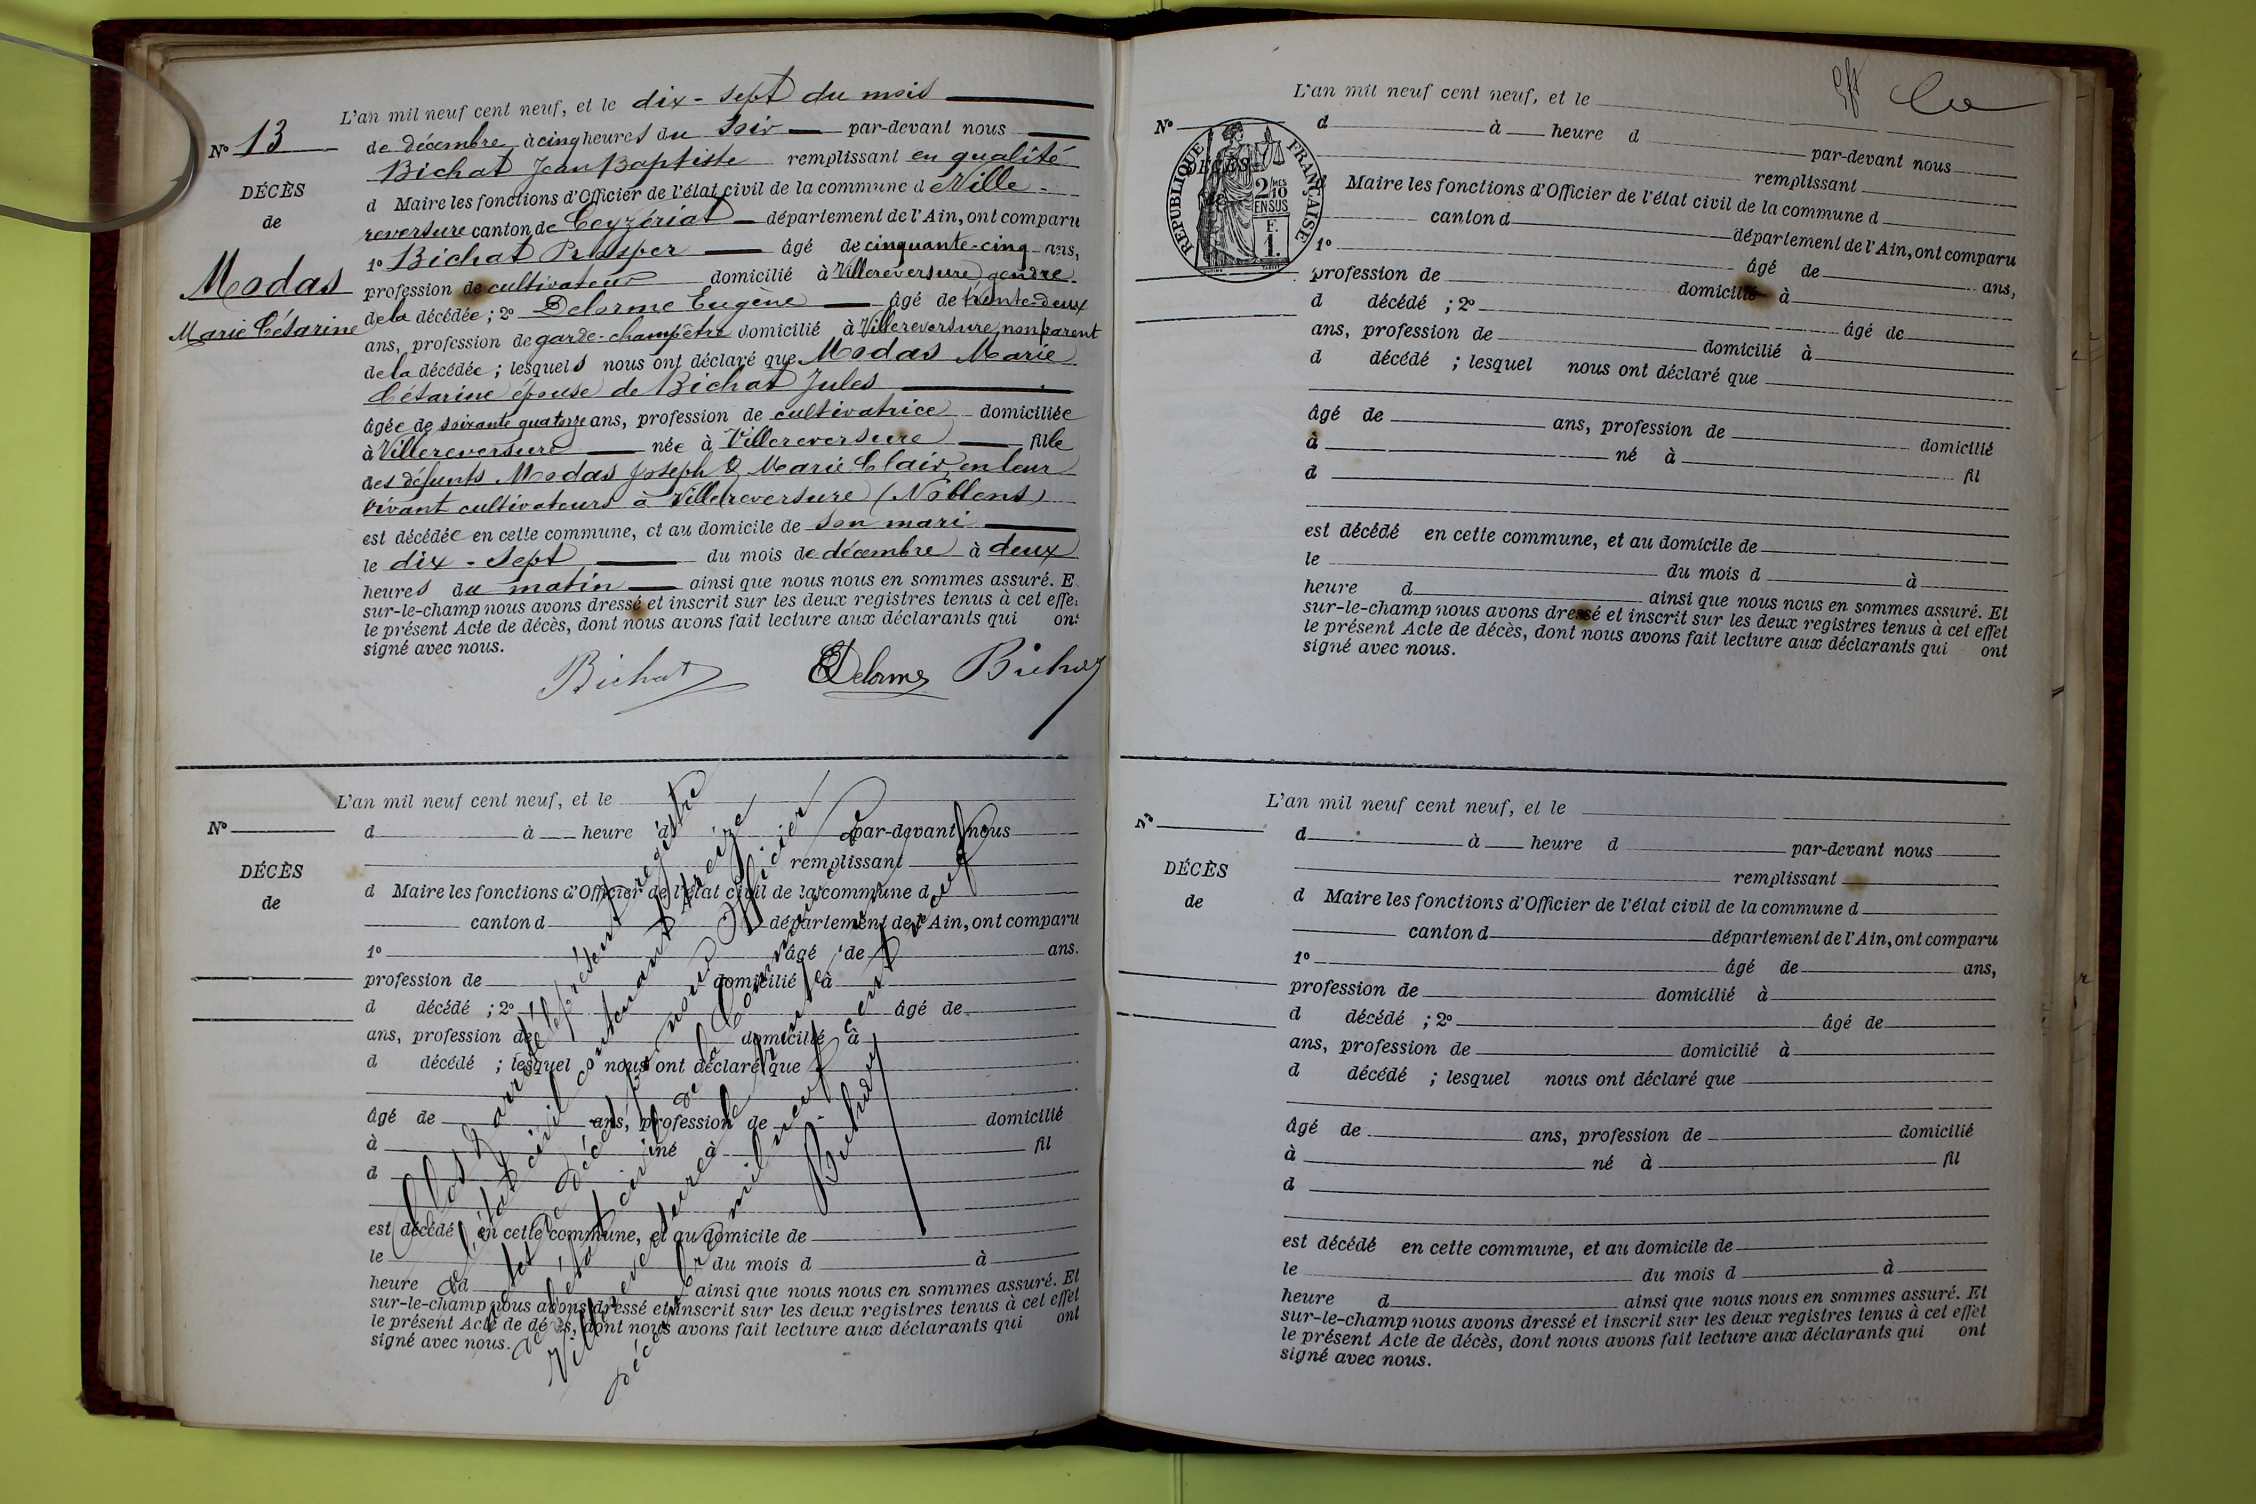 L'an mil neuf cent neuf, et le dix-sept du mois
N° 13
de décembre à cinq heures du soir par-devant nous
Bichat Jean Baptiste remplissant en qualité
DÉCÈS
d Maire les fonctions d'Officier de l'état civil de la commune de Ville-
de
reversure canton de Ceyzériat département de l'Ain, ont comparu
1° Bichat Prosper âgé de cinquante-cinq ans,
Modas
profession de cultivateur domicilié à Villereversure gendre
de la décédée ; 2° Delorme Eugène âgé de trente-deux
Marie Césarine
ans, profession de garde-champêtre domicilié à Villereversure, non parent
de la décédée ; lesquels nous ont déclaré que Modas Marie
Césarine épouse de Bichat Jules
âgée de soixante quatorze ans, profession de cultivatrice domiciliée
à Villereversure née à Villereversure fille
des défunts Modas Joseph & Marie Clair, en leur
vivant cultivateurs à Villereversure (Noblens)
est décédée en cette commune, et au domicile de son mari
le dix-sept du mois de décembre à deux
heures du matin ainsi que nous nous en sommes assuré. E
sur-le-champ nous avons dressé et inscrit sur les deux registres tenus à cet effe
le présent Acte de décès, dont nous avons fait lecture aux déclarants qui ont
signé avec nous.
Bichat EDelorme Bichat
L'an mil neuf cent neuf, et le
N°
d à heure d par-devant nous
remplissant
DÉCÈS
d Maire les fonctions d'Officier de l'état civil de la commune d
de
canton d département de l'Ain, ont comparu
1° âgé de ans.
profession de domicilié à
d décédé ; 2° âgé de
ans, profession de domicilié à
d décédé ; lesquel nous ont déclaré que
âgé de ans, profession de domicilié
à né à fil
d
est décédé en cette commune, et au domicile de
le du mois d à
heure d ainsi que nous nous en sommes assuré. Et
sur-le-champ nous avons dressé et inscrit sur les deux registres tenus à cet effet
le présent Acte de décès, dont nous avons fait lecture aux déclarants qui ont
signé avec nous.
Clos & arrêté le présent registre
de l'état civil contenant treize
actes de décès par nous Officier
de l'état civil de la Commune de
Villereversure le trente un
décembre mil neuf cent neuf
Bichat
L'an mil neuf cent neuf, et le
N°
d à heure d par-devant nous
remplissant
DÉCÈS
de
RÉPUBLIQUE FRANÇAISE
2/10 EN SUS
F.
1.
d Maire les fonctions d'Officier de l'état civil de la commune d
canton d département de l'Ain, ont comparu
1° âgé de ans,
profession de domicilié à
d décédé ; 2° âgé de
ans, profession de domicilié à
d décédé ; lesquel nous ont déclaré que
âgé de ans, profession de domicilié
à né à fil
d
est décédé en cette commune, et au domicile de
le du mois d à
heure d ainsi que nous nous en sommes assuré. Et
sur-le-champ nous avons dressé et inscrit sur les deux registres tenus à cet effet
le présent Acte de décès, dont nous avons fait lecture aux déclarants qui ont
signé avec nous.
L'an mil neuf cent neuf, et le
N°
d à heure d par-devant nous
remplissant
DÉCÈS
d Maire les fonctions d'Officier de l'état civil de la commune d
de
canton d département de l'Ain, ont comparu
1° âgé de ans,
profession de domicilié à
d décédé ; 2° âgé de
ans, profession de domicilié à
d décédé ; lesquel nous ont déclaré que
âgé de ans, profession de domicilié
à né à fil
d
est décédé en cette commune, et au domicile de
le du mois d à
heure d ainsi que nous nous en sommes assuré. Et
sur-le-champ nous avons dressé et inscrit sur les deux registres tenus à cet effet
le présent Acte de décès, dont nous avons fait lecture aux déclarants qui ont
signé avec nous.